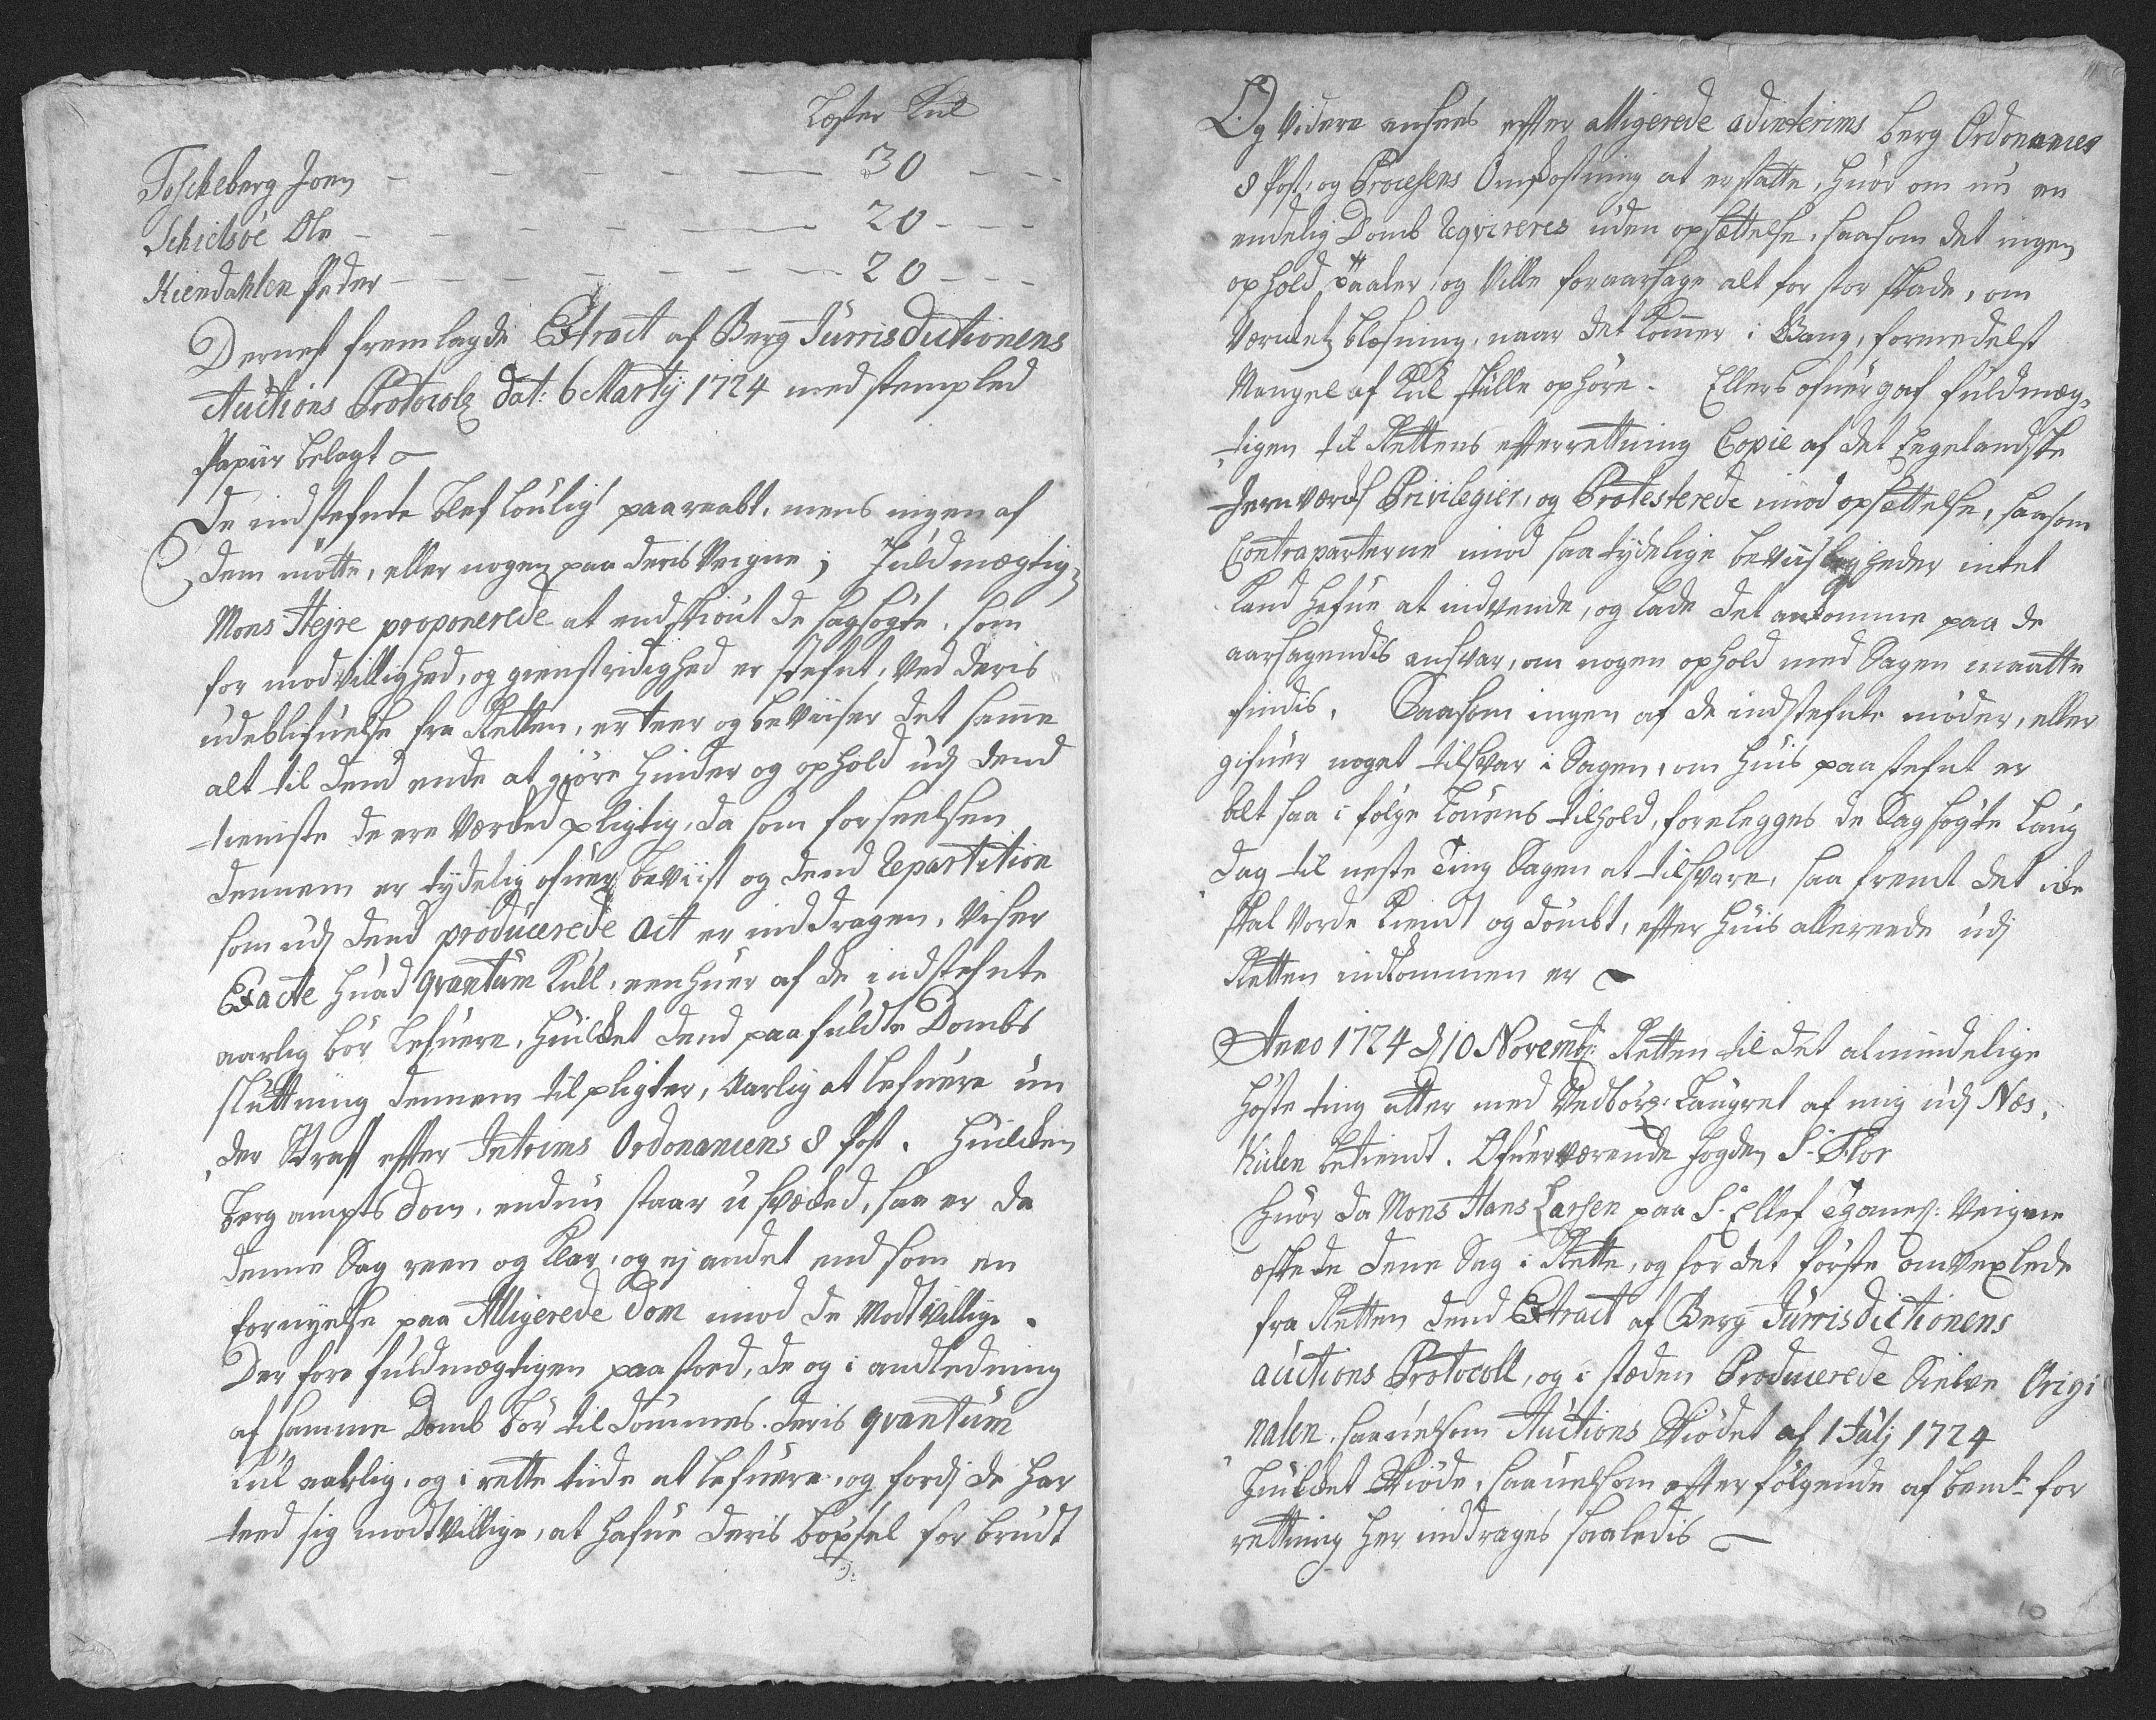 Lester Kul
Toskeberg Joen — — — — — — 30 — — —
Schielsöe Ole — — — — — — 20 — — —
Kiendahlen Peder — — — — — — 20 — — —
Dernest fremlagde Extract af Berg Jurrisdictionens
Auctions Protocoll dat: 6 Martij 1724 med stempled
Papiir belagt
De indstefnte blef loulig paaraabt, mens ingen af
dem mötte, eller nogen paa deris Veigne; Fuldmægtig
Mons Hejre proponerede at endskiönt de sagsögte, som
for modvillighed, og gienstridighed er stefnt, ved deris
udeblifuelse fra Retten, er teer og beviiser det samme
alt til dend ende at giöre hinder og ophold udj dend
tieniste de ere Værcked pligtig, da som forseelsen
dennem er tydelig ofuerbeviist og dend repartition
som udj dend producerede act er inddragen, viser
Exacte huad qvantum Kull, een huer af de indstefnte
aarlig bör lefuere, huilcket dend paafuldte Dombs
sluttning dennem tilpligter, Aarlig at lefuere un
der Straf efter Interims Ordonancens 8 post. Huilcken
Berg ampts dom, endnu staar u svæcked, saa er da
denne Sag reen og klar, og ej andet end som en
fornyelse paa Alligerede Dom imod de Modtvillige.
Derfore fuldmægtigen paastoed, de og i andledning
af samme Domb bör tildömmes deris qvantum
Kul aarlig, og i rette tiide at lefuere, og fordj de har
teed sig modtvillige, at hafue deris böxsel forbrudt
Og videre ansees efter alligerede adinterims berg Ordonances
8 Post, og Processens Omkostning at erstatte, huor om nu en
endelig Domb reqvireres uden opsættelse, saasom det ingen
ophold taaler, og Ville foraarsage alt for stor skade, om
Værcketz blæsning, naar det kommer i Gang, formedelst
Mangel af Kul skulle ophöre. Ellers ofuergaf fuldmæg,
tigen til Rettens efterrettning Copie af det Eegelandske
Jernværcks Privilegier, og Protesterede imod opsættelse, saasom
Contraparterne imod saa tydelige beviisligheder intet
kand hafue at indvende, og lade det ankomme paa de
aarsagendis ansvar, om nogen ophold med Sagen maatte
findis. Saasom ingen af de indstefnte möder, eller
gifuer noget tilsvar i Sagen, om huis paastefnt er
alt saa i fölge Louens tilhold, forelegges de Sagsögte Laug
dag til neste Ting Sagen at tilsvare, saa fremt det icke
skal vorde kiendt og dömbt, efter huis allereede udj
Retten indkommen er
Anno 1724 dj 10 Novembr: Retten til det almindelige
Höste ting atter med Vedbörl: Laugret af mig udj Næs,
Kielen betient. Ofuerværende fogden Sr Flor
Huor da Mons Hans Larsen paa Sr Ellef Tgomes: Veigne
æskede dene Sag i Rette, og for det förste omvexlede
fra Retten dend Extract af Berg Jurrisdictionens
auctions Protocoll, og i stæden Producerede Sielve Origi
nalen, saauelsom Auctions Skiödet af 1 Julj 1724
Huilcket Skiöde, saauelsom efterfölgende af bemte for
rettning her inddrages saaledis
10